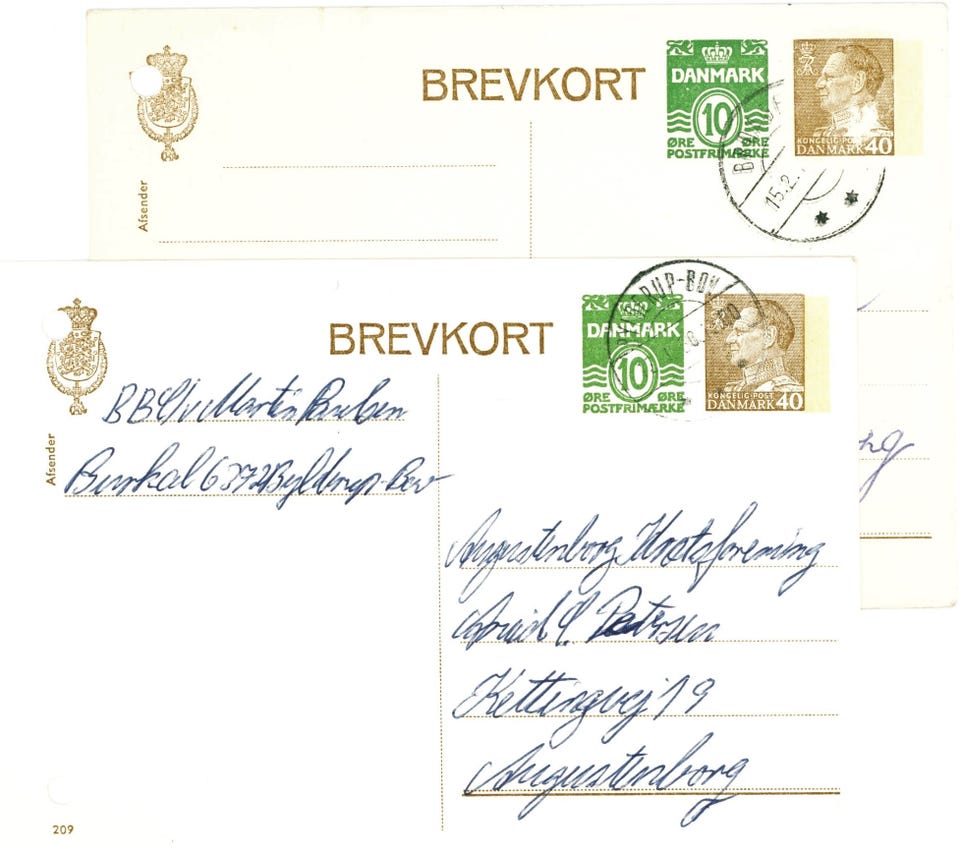 BREVKORT
DANMARK
10
ØRE ØRE
POSTFRIMÆRKE
KONGELIG·POST
DANMARK 40
15.2.
Afsender
BREVKORT
DANMARK
10
ØRE ØRE
POSTFRIMÆRKE
KONGELIG·POST
DANMARK 40
RUP-BOV
Afsender
BBC/v Martin Paulsen
Burkal 6372 Bylderup-Bov
Augustenborg Idrætsforening
C. Petersen
Kettingvej 19
Augustenborg
209